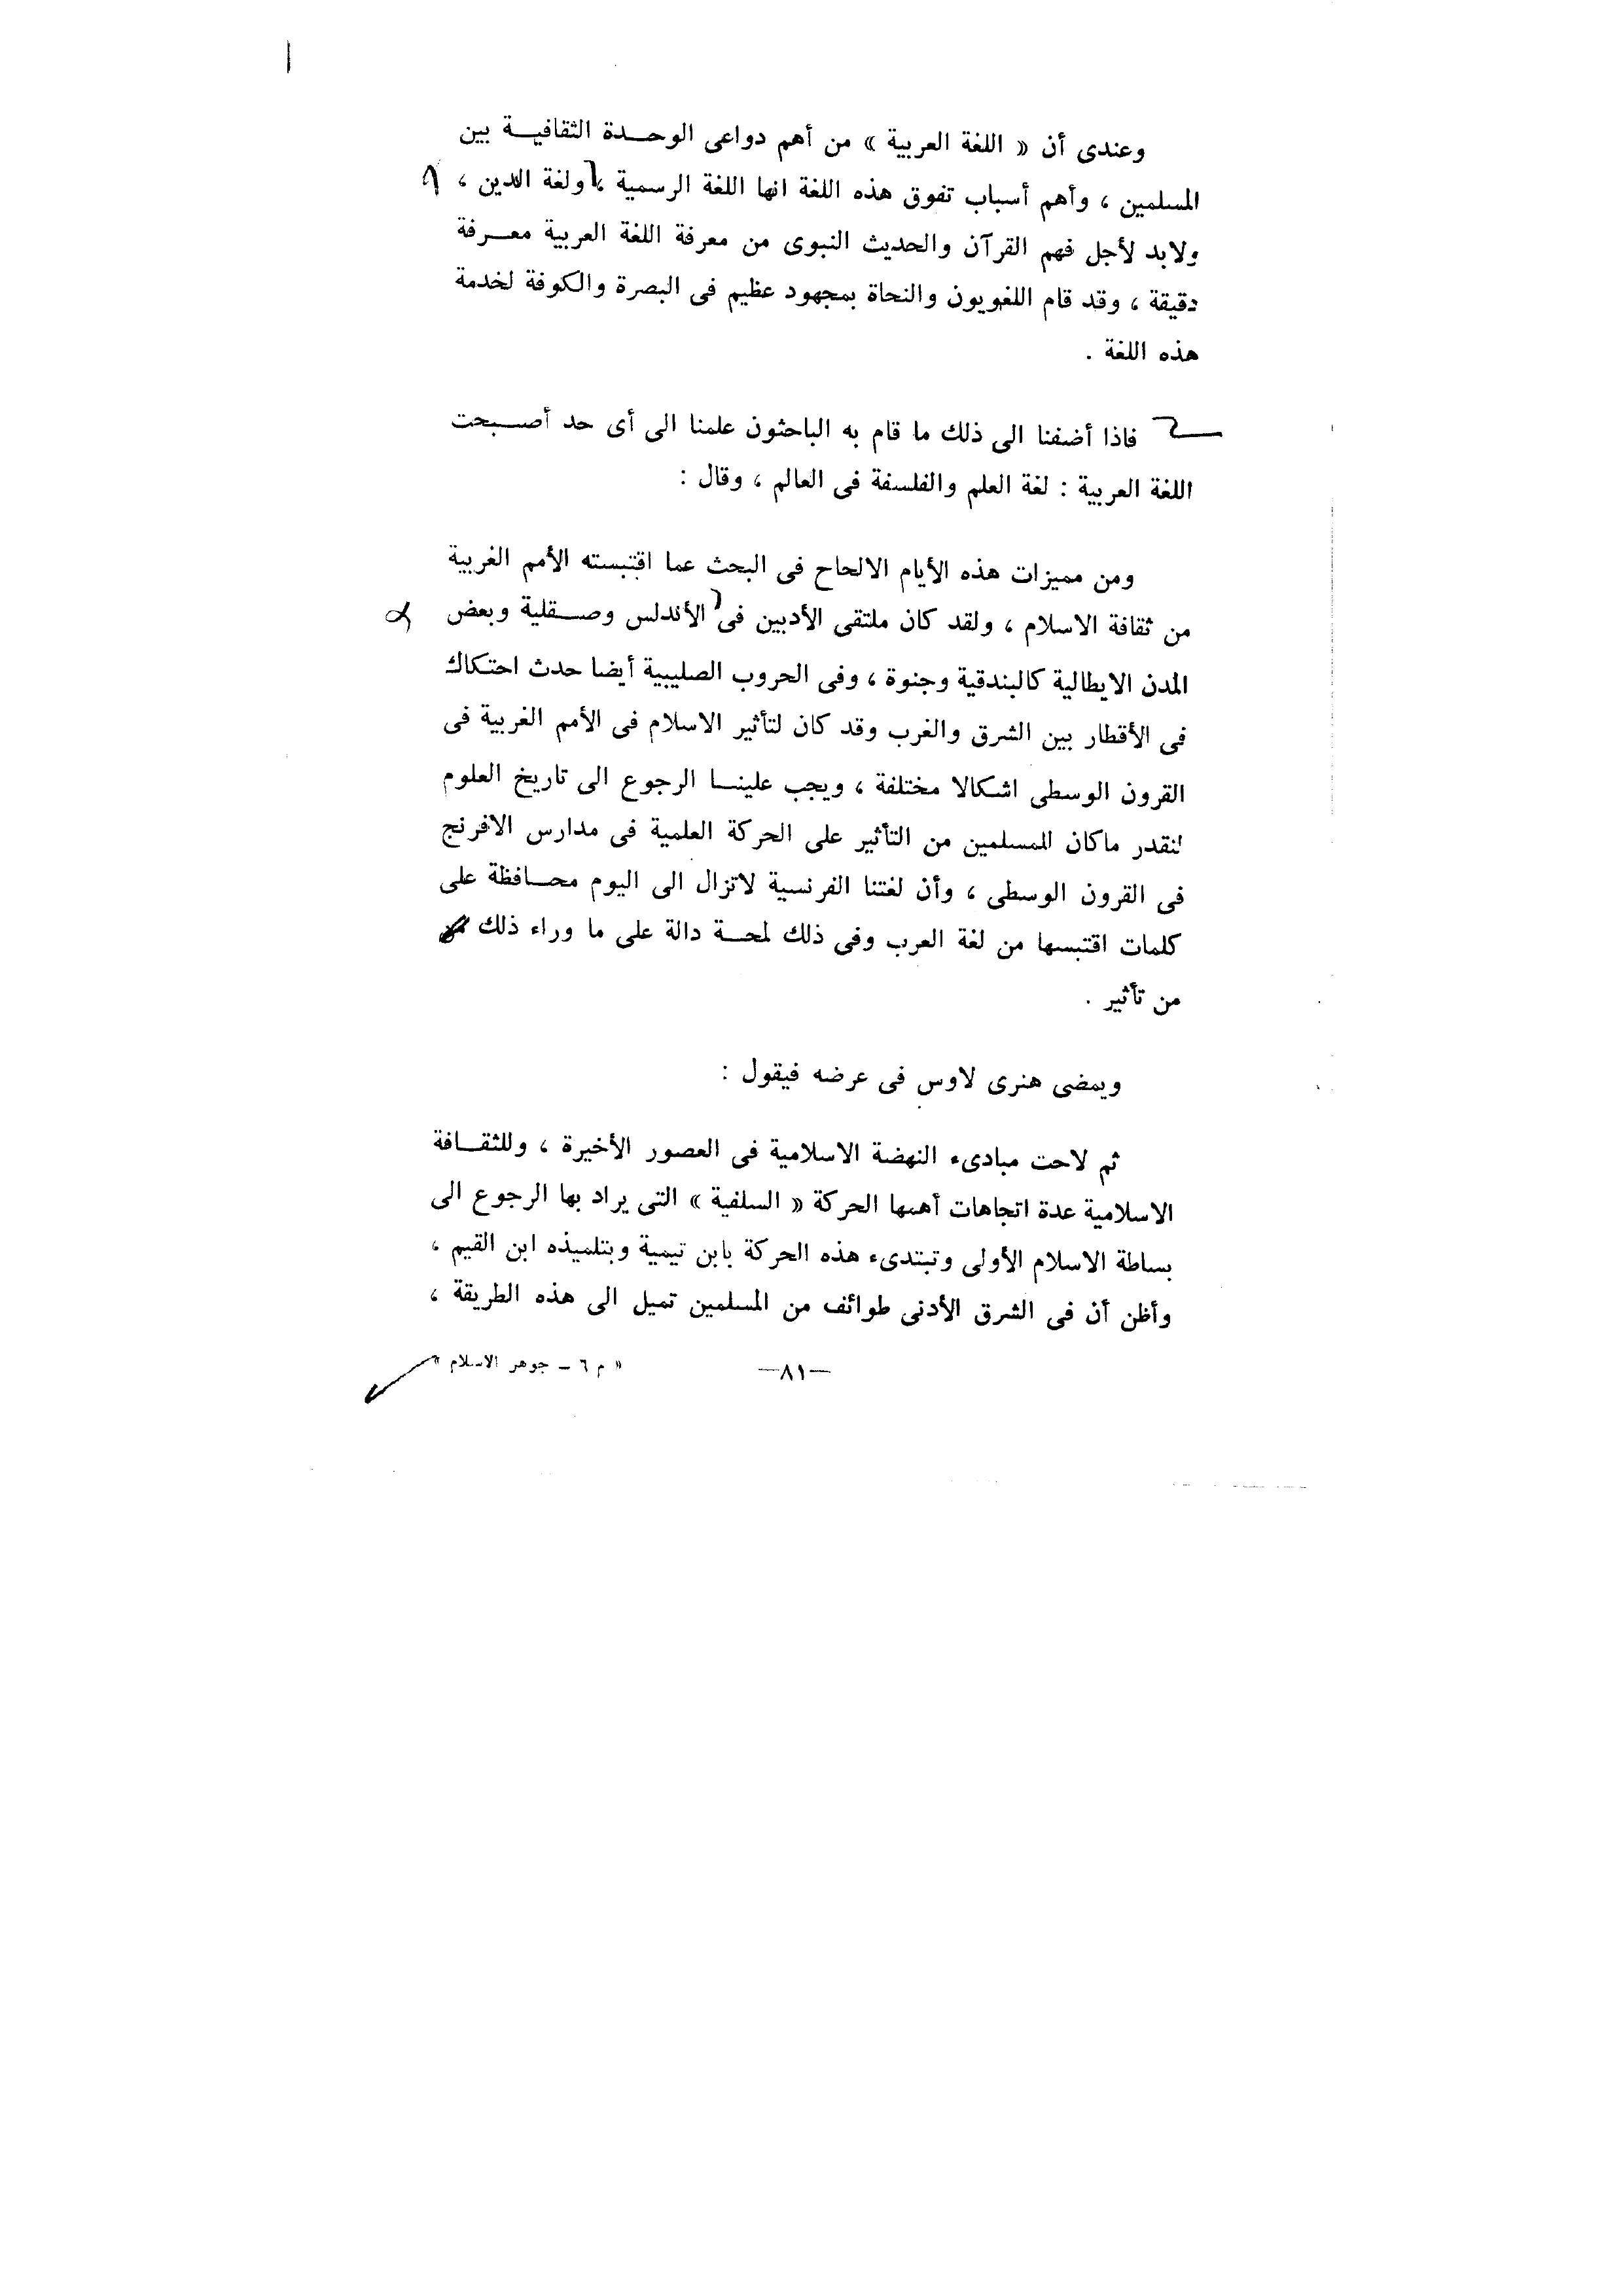 وعندى أن « اللغة العربية » من أهم دواعى الوحدة الثقافية بين
المسلمين ، وأهم أسباب تفوق هذه اللغة انها اللغة الرسمية ، ولغة الدين ،
ولابد لأجل فهم القرآن والحديث النبوى من معرفة اللغة العربية معرفة
دقيقة ، وقد قام اللغويون والنحاة بمجهود عظيم فى البصرة والكوفة لخدمة
هذه اللغة .
فاذا أضفنا الى ذلك ما قام به الباحثون علمنا الى أى حد أصبحت
اللغة العربية : لغة العلم والفلسفة فى العالم ، وقال :
ومن مميزات هذه الأيام الالحاح فى البحث عما اقتبسته الأمم الغربية
من ثقافة الاسلام ، ولقد كان ملتقى الأدبين فى الأندلس وصقلية وبعض
المدن الايطالية كالبندقية وجنوة ، وفى الحروب الصليبية أيضا حدث احتكاك
فى الأقطار بين الشرق والغرب وقد كان لتأثير الاسلام فى الأمم الغربية فى
القرون الوسطى اشكالا مختلفة ، ويجب علينا الرجوع الى تاريخ العلوم
لنقدر ماكان للمسلمين من التأثير على الحركة العلمية فى مدارس الافرنج
فى القرون الوسطى ، وأن لغتنا الفرنسية لاتزال الى اليوم محافظة على
كلمات اقتبسها من لغة العرب وفى ذلك لمحة دالة على ما وراء ذلك
من تأثير .
ويمضى هنرى لاوس فى عرضه فيقول :
ثم لاحت مبادىء النهضة الاسلامية فى العصور الأخيرة ، وللثقافة
الاسلامية عدة اتجاهات أهمها الحركة « السلفية » التى يراد بها الرجوع الى
بساطة الاسلام الأولى وتبتدىء هذه الحركة بابن تيمية وبتلميذه ابن القيم ،
وأظن أن فى الشرق الأدنى طوائف من المسلمين تميل الى هذه الطريقة ،
—٨١—
« م ٦ – جوهر الاسلام »